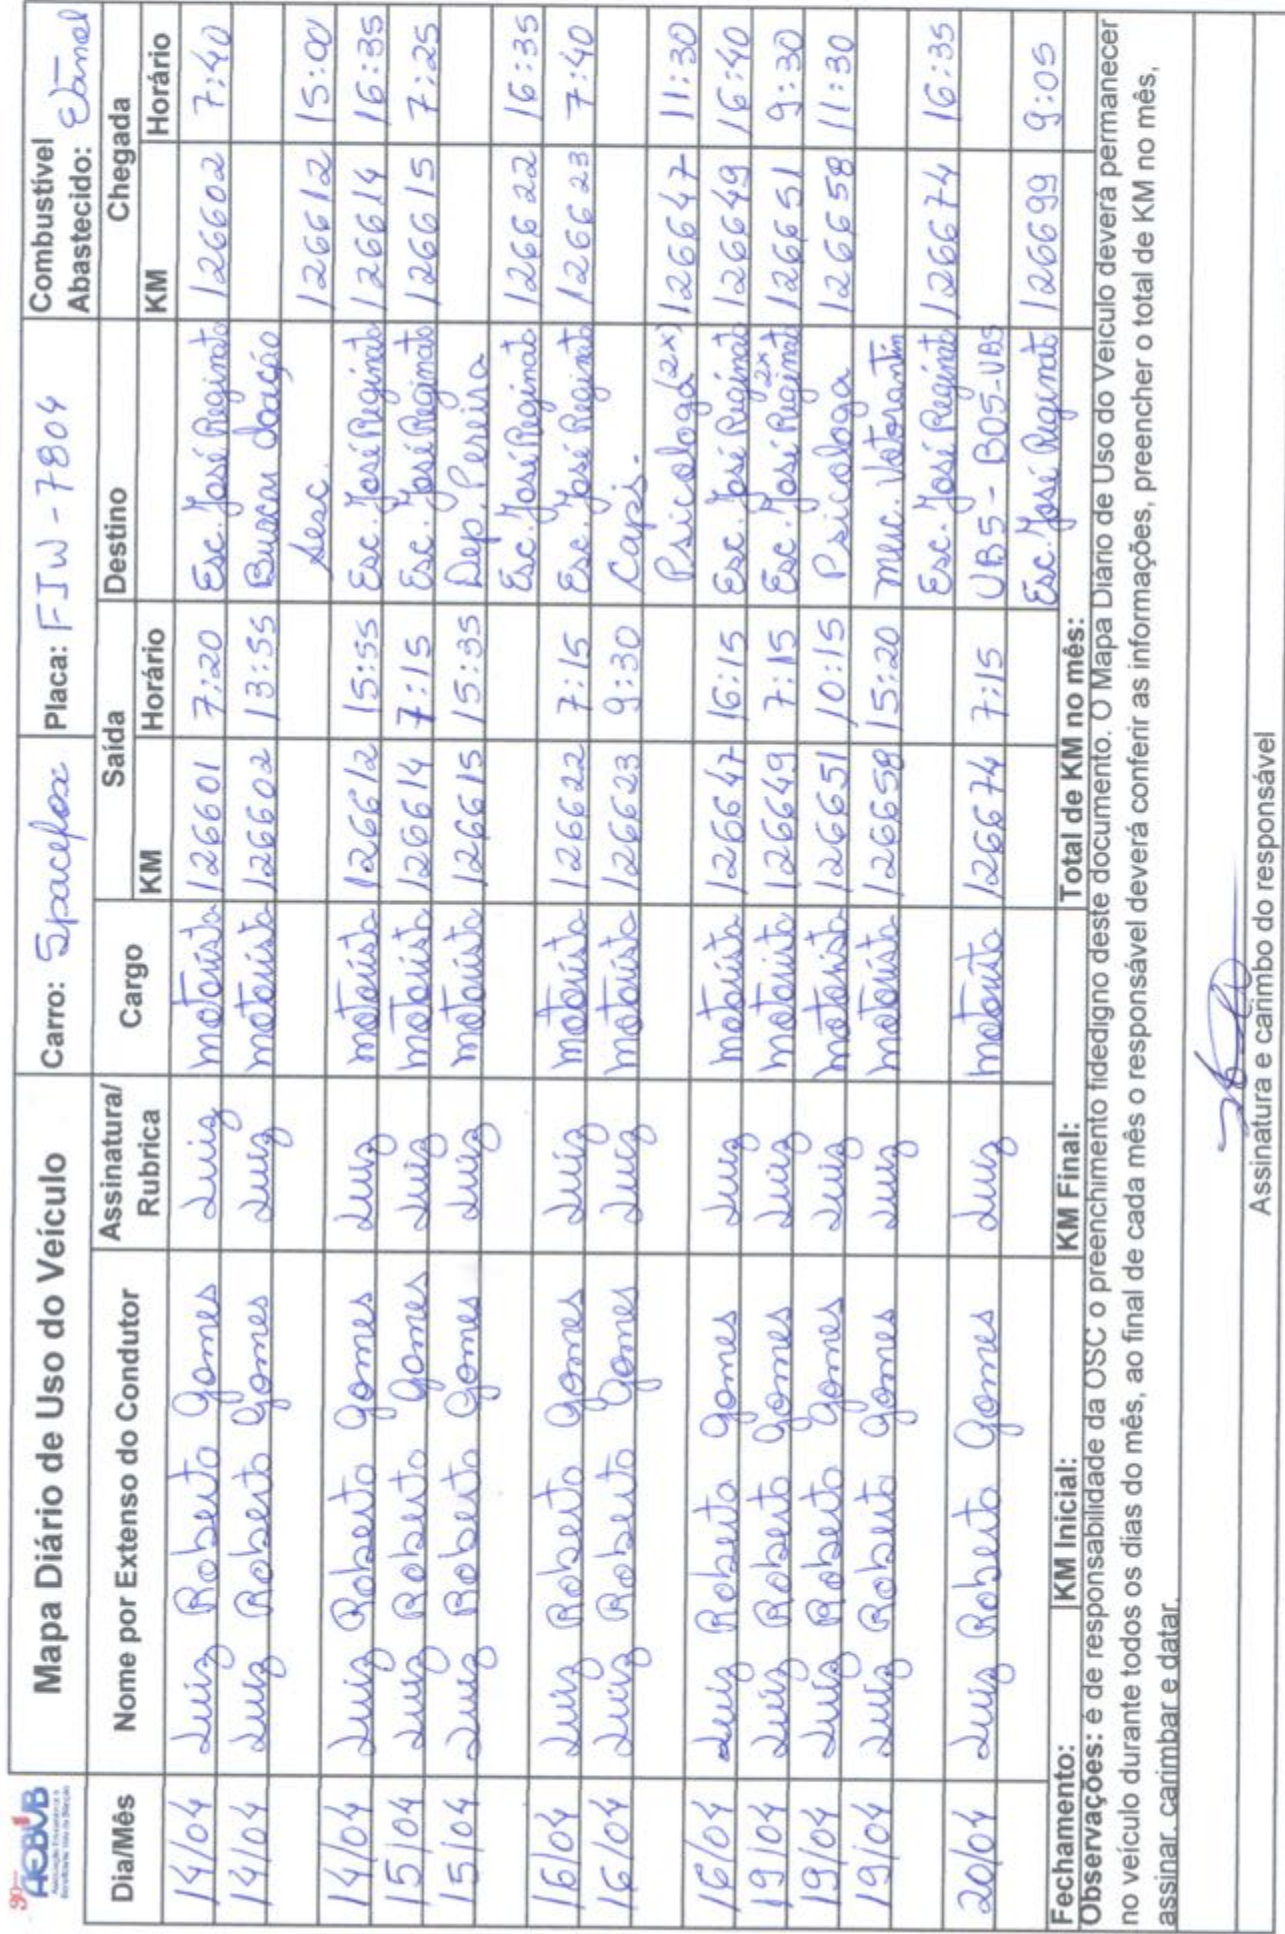 90
AEBVB
Mapa Diário de Uso do Veículo Carro: Spacefox Placa: FIW-7804 Combustível Abastecido: Etanol
Dia/Mês Nome por Extenso do Condutor Assinatura/Rubrica Cargo Saída Destino Chegada
KM Horário KM Horário
14/04 Luiz Roberto Gomes Luiz motorista 126601 7:20 Esc. José Reginato 126602 7:40
14/04 Luiz Roberto Gomes Luiz motorista 126602 13:55 Buscar doação
Sesc. 126612 15:00
14/04 Luiz Roberto Gomes Luiz motorista 126612 15:55 Esc. José Reginato 126614 16:35
15/04 Luiz Roberto Gomes Luiz motorista 126614 7:15 Esc. José Reginato 126615 7:25
15/04 Luiz Roberto Gomes Luiz motorista 126615 15:35 Dep. Pereira
Esc. José Reginato 126622 16:35
16/04 Luiz Roberto Gomes Luiz motorista 126622 7:15 Esc. José Reginato 126623 7:40
16/04 Luiz Roberto Gomes Luiz motorista 126623 9:30 Capi.
Psicologa (2x) 126647 11:30
16/04 Luiz Roberto Gomes Luiz motorista 126647 16:15 Esc. José Reginato 126649 16:40
19/04 Luiz Roberto Gomes Luiz motorista 126649 7:15 Esc. José Reginato 2x 126651 9:30
19/04 Luiz Roberto Gomes Luiz motorista 126651 10:15 Psicologa 126658 11:30
19/04 Luiz Roberto Gomes Luiz motorista 126658 15:20 Merc. Votorantim
Esc. José Reginato 126674 16:35
20/04 Luiz Roberto Gomes Luiz motorista 126674 7:15 UBS - BOS-UBS
Esc. José Reginato 126699 9:05
Fechamento: KM Inicial: KM Final: Total de KM no mês:
Observações: é de responsabilidade da OSC o preenchimento fidedigno deste documento. O Mapa Diário de Uso do Veículo deverá permanecer
no veículo durante todos os dias do mês, ao final de cada mês o responsável deverá conferir as informações, preencher o total de KM no mês,
assinar, carimbar e datar.
Assinatura e carimbo do responsável